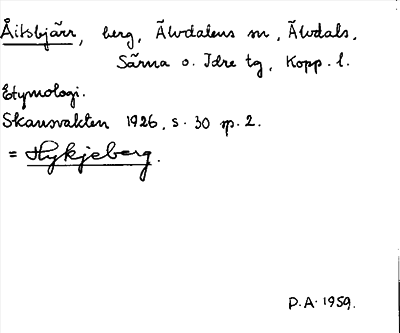 Åitsbjärr, berg, Älvdalens sn, Älvdals,
Särna o. Idre tg, Kopp. l.
Etymologi.
Skansvakten 1926, s. 30 sp. 2.
= Hykjeberg.
D.A. 1959.